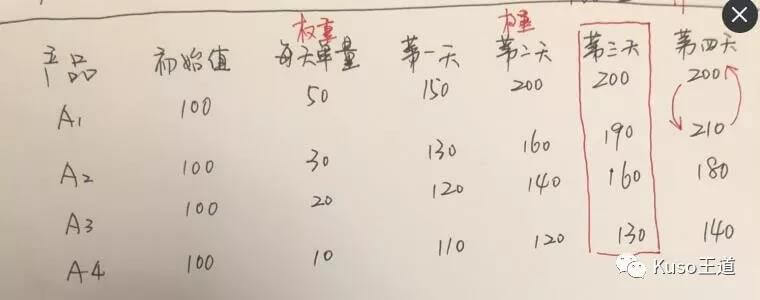 权重 权重
产品 初始值 每天单量 第一天 第二天 第三天 第四天
A1 100 50 150 200 200 200
A2 100 30 130 160 190 210
A3 100 20 120 140 160 180
A4 100 10 110 120 130 140
Kuso王道